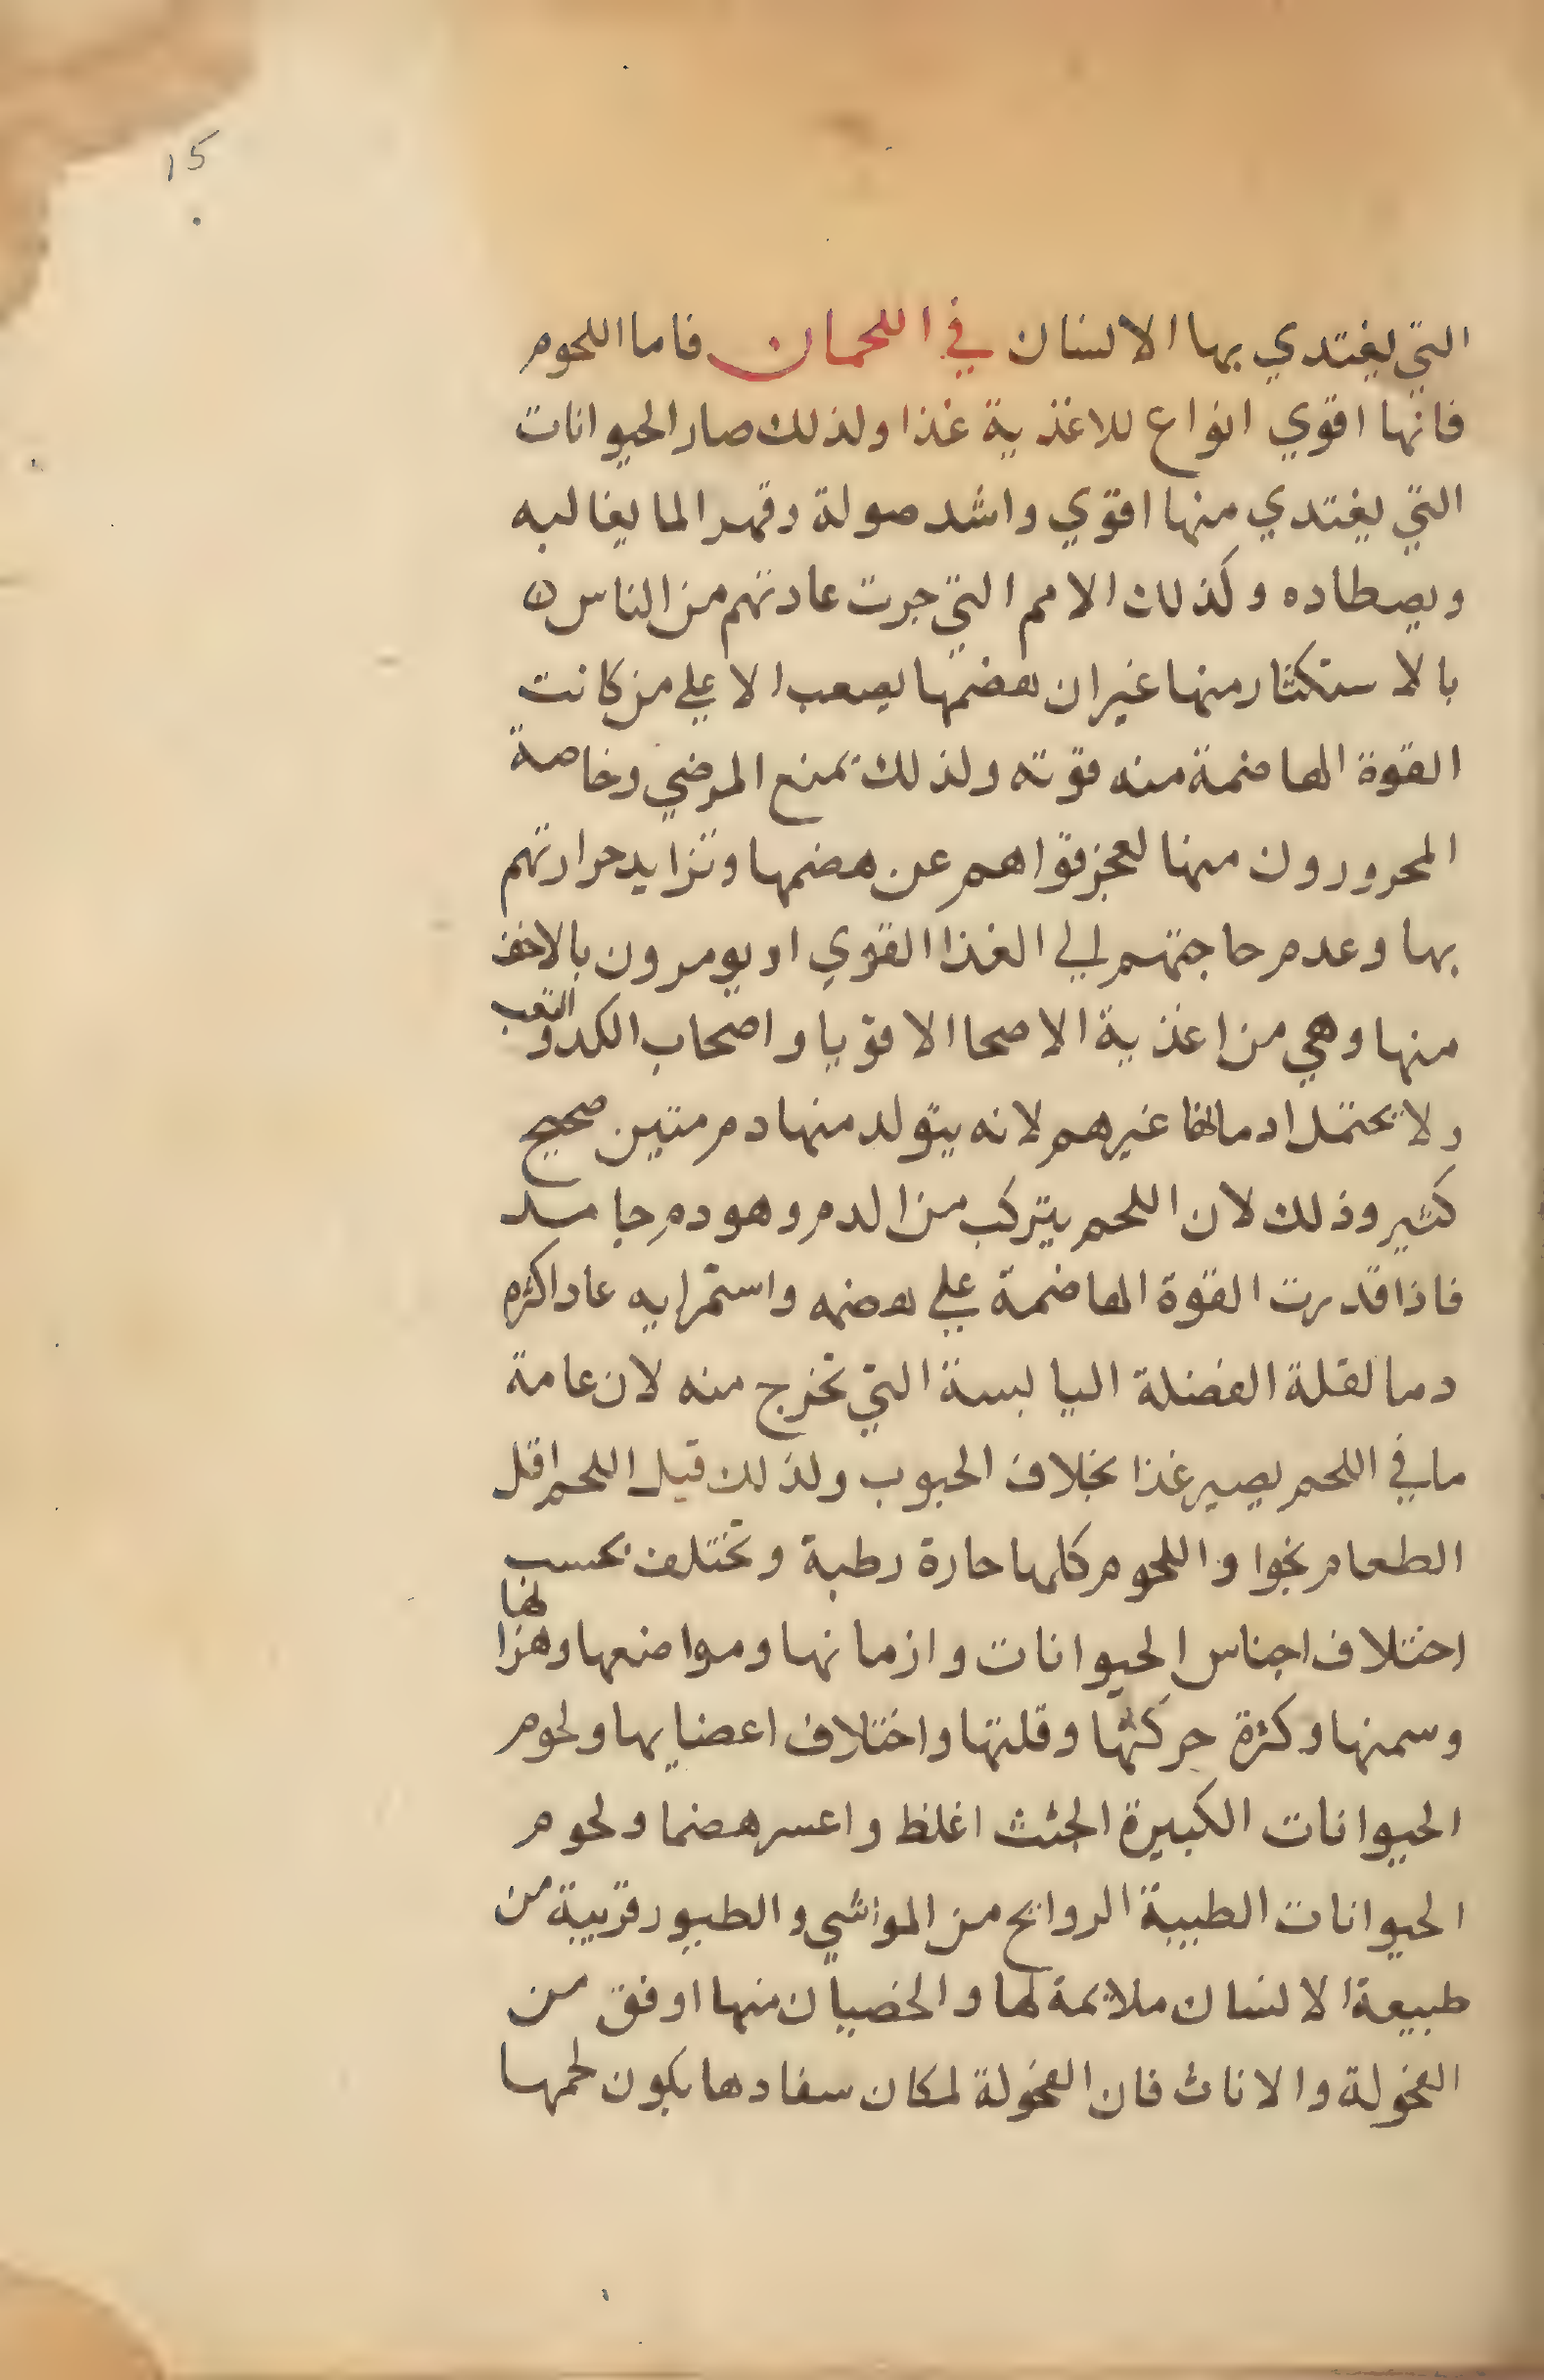 15
التي يغتدي بها الانسان في اللحمان فاما اللحوم
فانها اقوي انواع للاغذية غذا ولذلك صار الحيوانات
التي يغتدي منها اقوي واشد صولة وقهرا لما يغالبه
ويصطاده وكذلك الامم التي جرت عادتهم من الناس ه
بالاستكثار منها غير ان هضمها يصعب الا علي من كانت
القوة الهاضمة منه قوته ولذلك تمنع المرضي وخاصة
المحرورون منها لعجز قواهم عن هضمها وتزايد حرارتهم
بها وعدم حاجتهم الي الغذا القوي او يومرون بالاخف
منها وهي من اغذية الاصحا الاقويا واصحاب الكد والتعب
ولا يحتمل ادمانها غيرهم لانه يتولد منها دم متين صحيح
كثير وذلك لان اللحم يتركب من الدم وهو دم جامد
فاذا قدرت القوة الهاضمة علي هضمه واستمرايه عاد اكثره
دما لقلة الفضلة اليابسة التي تخرج منه لان عامة
ما في اللحم يصير غذا بخلاف الحبوب ولذلك قيل اللحم اقل
الطعام نجوا واللحوم كلها حارة رطبة وتختلف بحسب
اختلاف اجناس الحيوانات وازمانها ومواضعها وهزالها
وسمنها وكثرة حركتها وقلتها واختلاف اعضايها ولحوم
الحيوانات الكبيرة الجثث اغلظ واعسر هضما ولحوم
الحيوانات الطيبة الروايح من المواشي والطيور قريبة من
طبيعة الانسان ملايمة لها والخصيان منها اوفق من
الفحولة والاناث فان الفحولة لمكان سفادها يكون لحمها